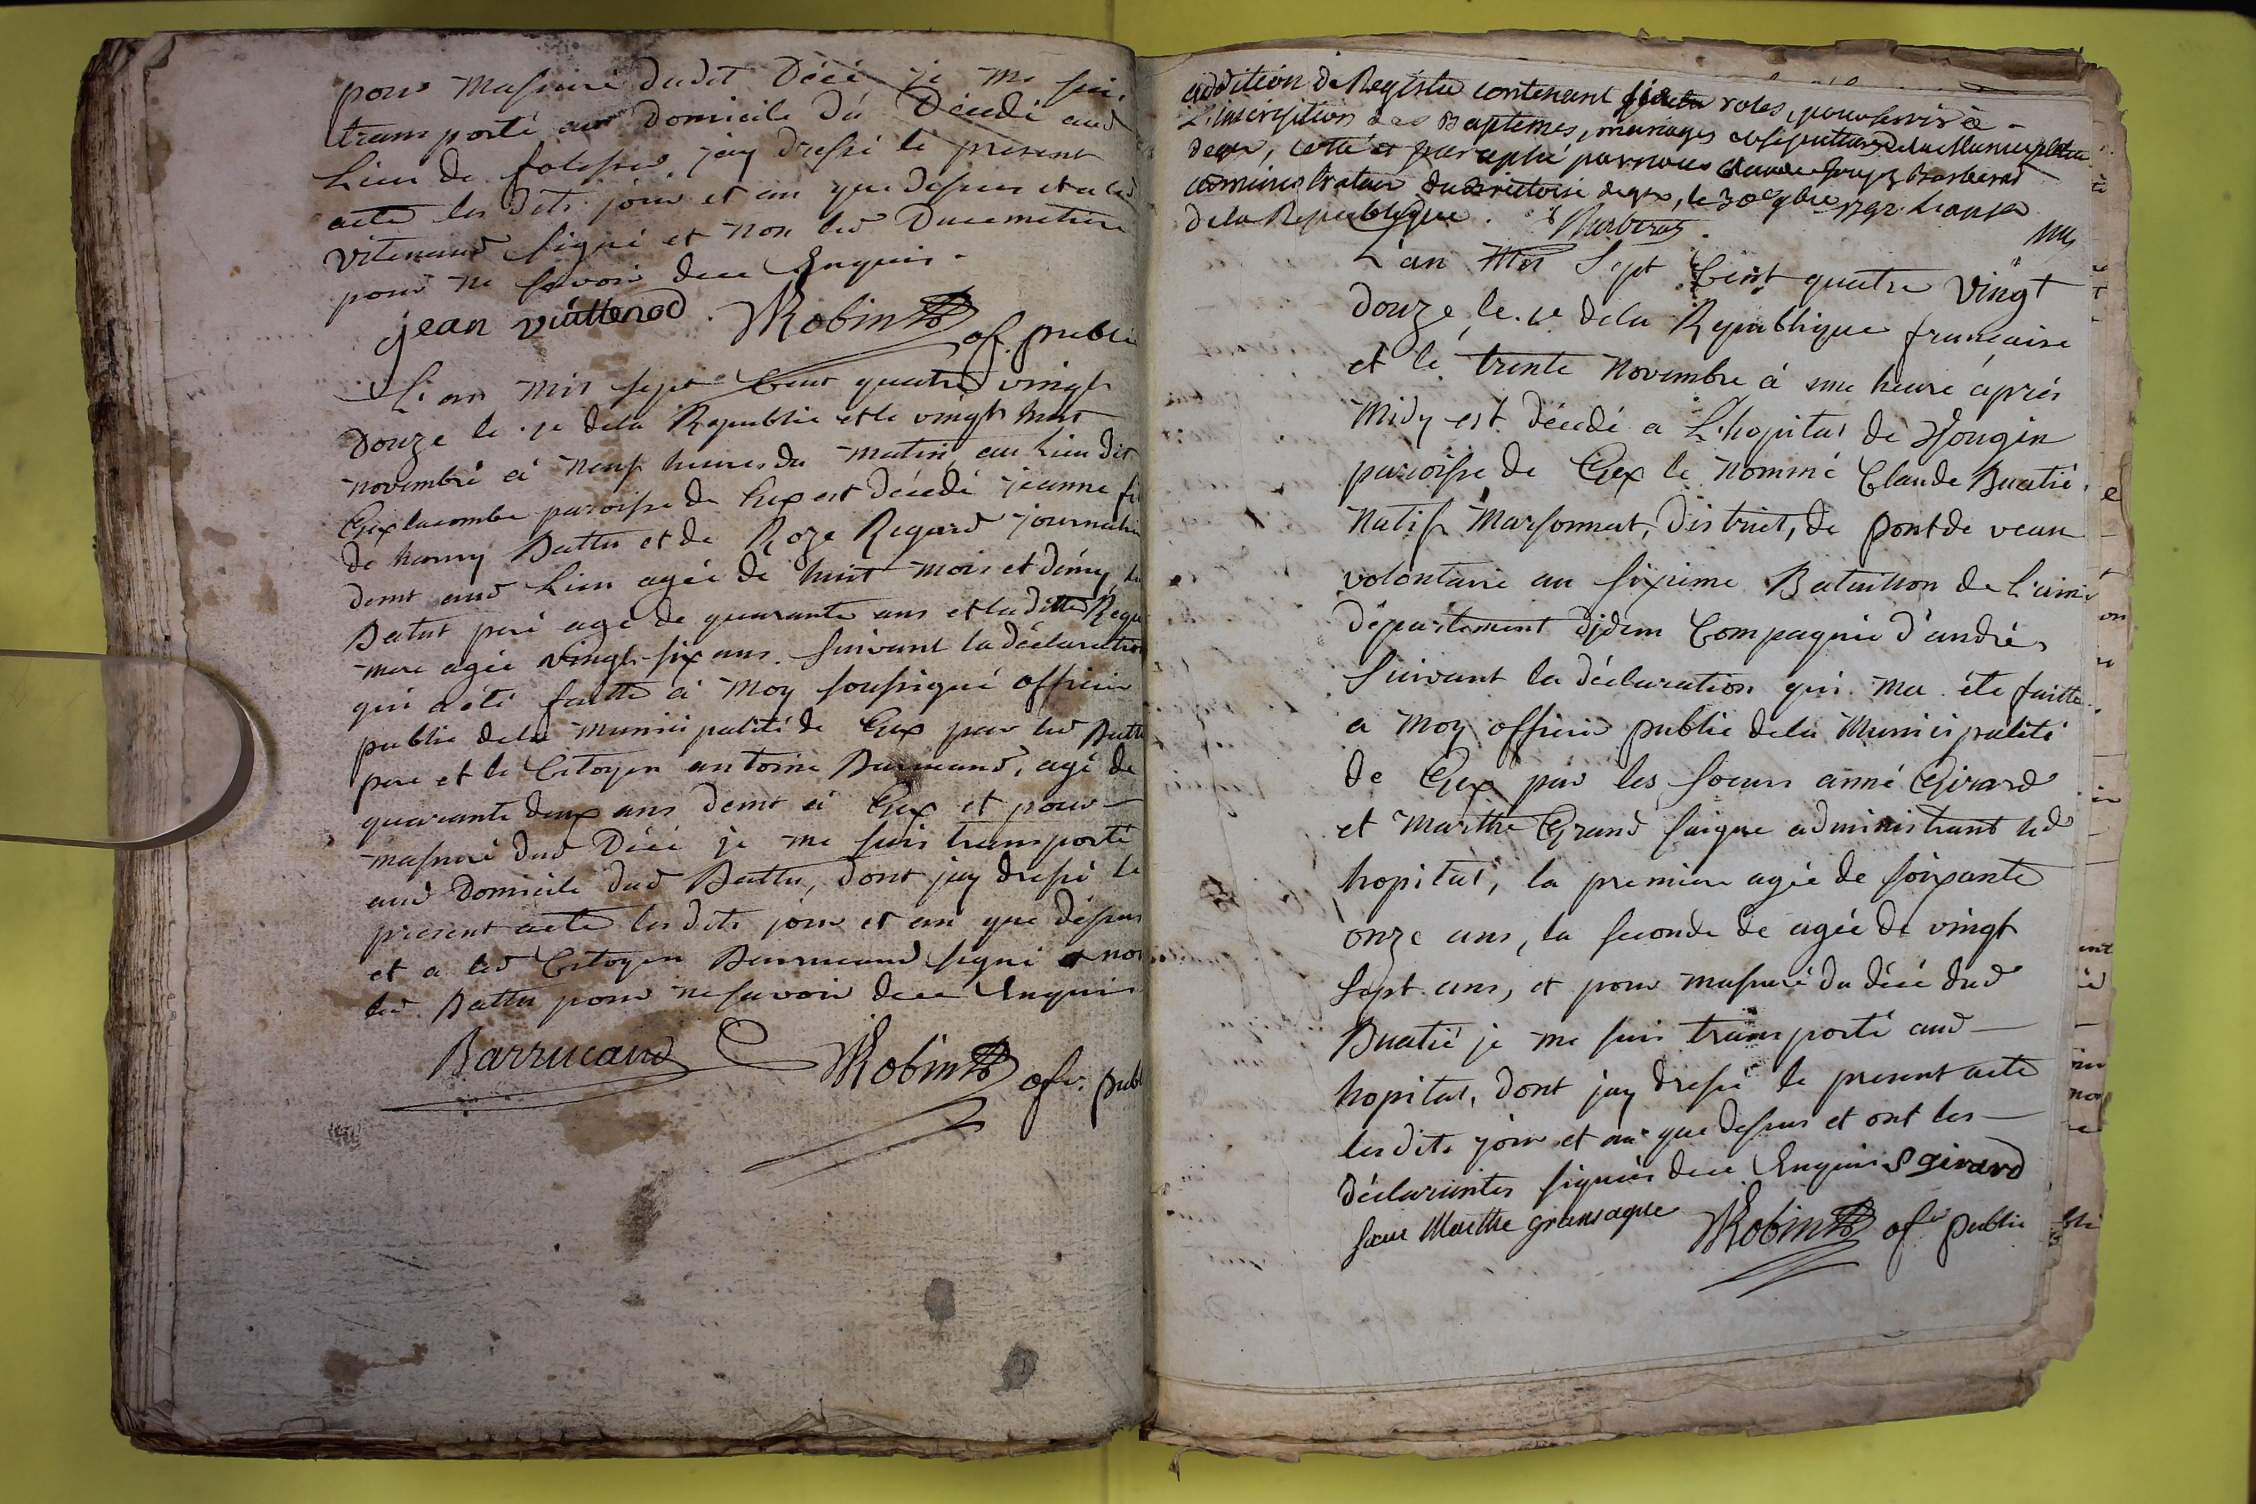 pour m'assuré dudit Décé je me suis
transporté aud Domicile du Décedé aud
Lieu de jay dressé le present
acte les dits jour et an que dessus et a led
vitenaud signé et non led Ducemetiere
pour ne savoir dece Enquis.
jean vuittenod. Robin
of. public
L'an mil sept Cent quatre vingt
Douze le 1e dela Republic et le vingt huit
novembre à neuf heures du matin, au Lieu dit
Gex lacombe paroisse de Gex est décedé jeanne fi
de hanry Battu et de Roze Regard journalier
demt aud Lieu agée de huit mois et démy, led
Battu peré agé de quarante ans et la ditte Rega
mere agée vingt six ans. Suivant la déclaration
qui a été faitte à Moy soussigné officier
public dela municipalité de Gex par led Battu
pere et le Citoyen antoine Barrucand, agé de
quarante deux ans demt à Gex et pour
m'assuré dud Décé je me suis transporté
aud Domicile dud Battu, dont jay dressé le
present acte les dits jour et an que dessus
et a led Citoyen Barrucand signé et non
led. Battu pour ne savoir dece Enquis
Barrucand Robin ofr. publ
addition de Registre contenant roles, pour servir à
L'inscription des Baptemes, mariages et sepultures de la Municipalité
degex, cotté et paraphé par nous Claude Barberat
administrateur du directoire degex, le 30e 9bre 1792 L'an 1er
dela Republique. Barberat.
L'an Mil Sept Cent quatre Vingt
Douze, le 1e dela Republique francaise
et le trente Novembre à une heure après
Midy est Décedé a L'hopital de
paroisse de Gex le Nommé Claude Buatié
Natif Marsonnat, District, de pont de veau
volontaire au sixieme Bataillon de L'ain
Département djdem Compagnie d'andré,
Suivant la déclaration qui ma été faitte
a Moy officier public dela Municipalité
de Gex par les soeurs anné Girard
et Marthe Grand saigne administrant led
hopital, la premiere agée de soixante
onze ans, la seconde de agée de vingt
sept ans, et pour m'assuré du décé dud
Buatié je me suis transporté aud
hopital, dont jay dressé le present acte
les dits jour et an que dessus et ont les
déclarantes signées dece Enquis S girard
soeur Marthe gransagne Robin ofr public